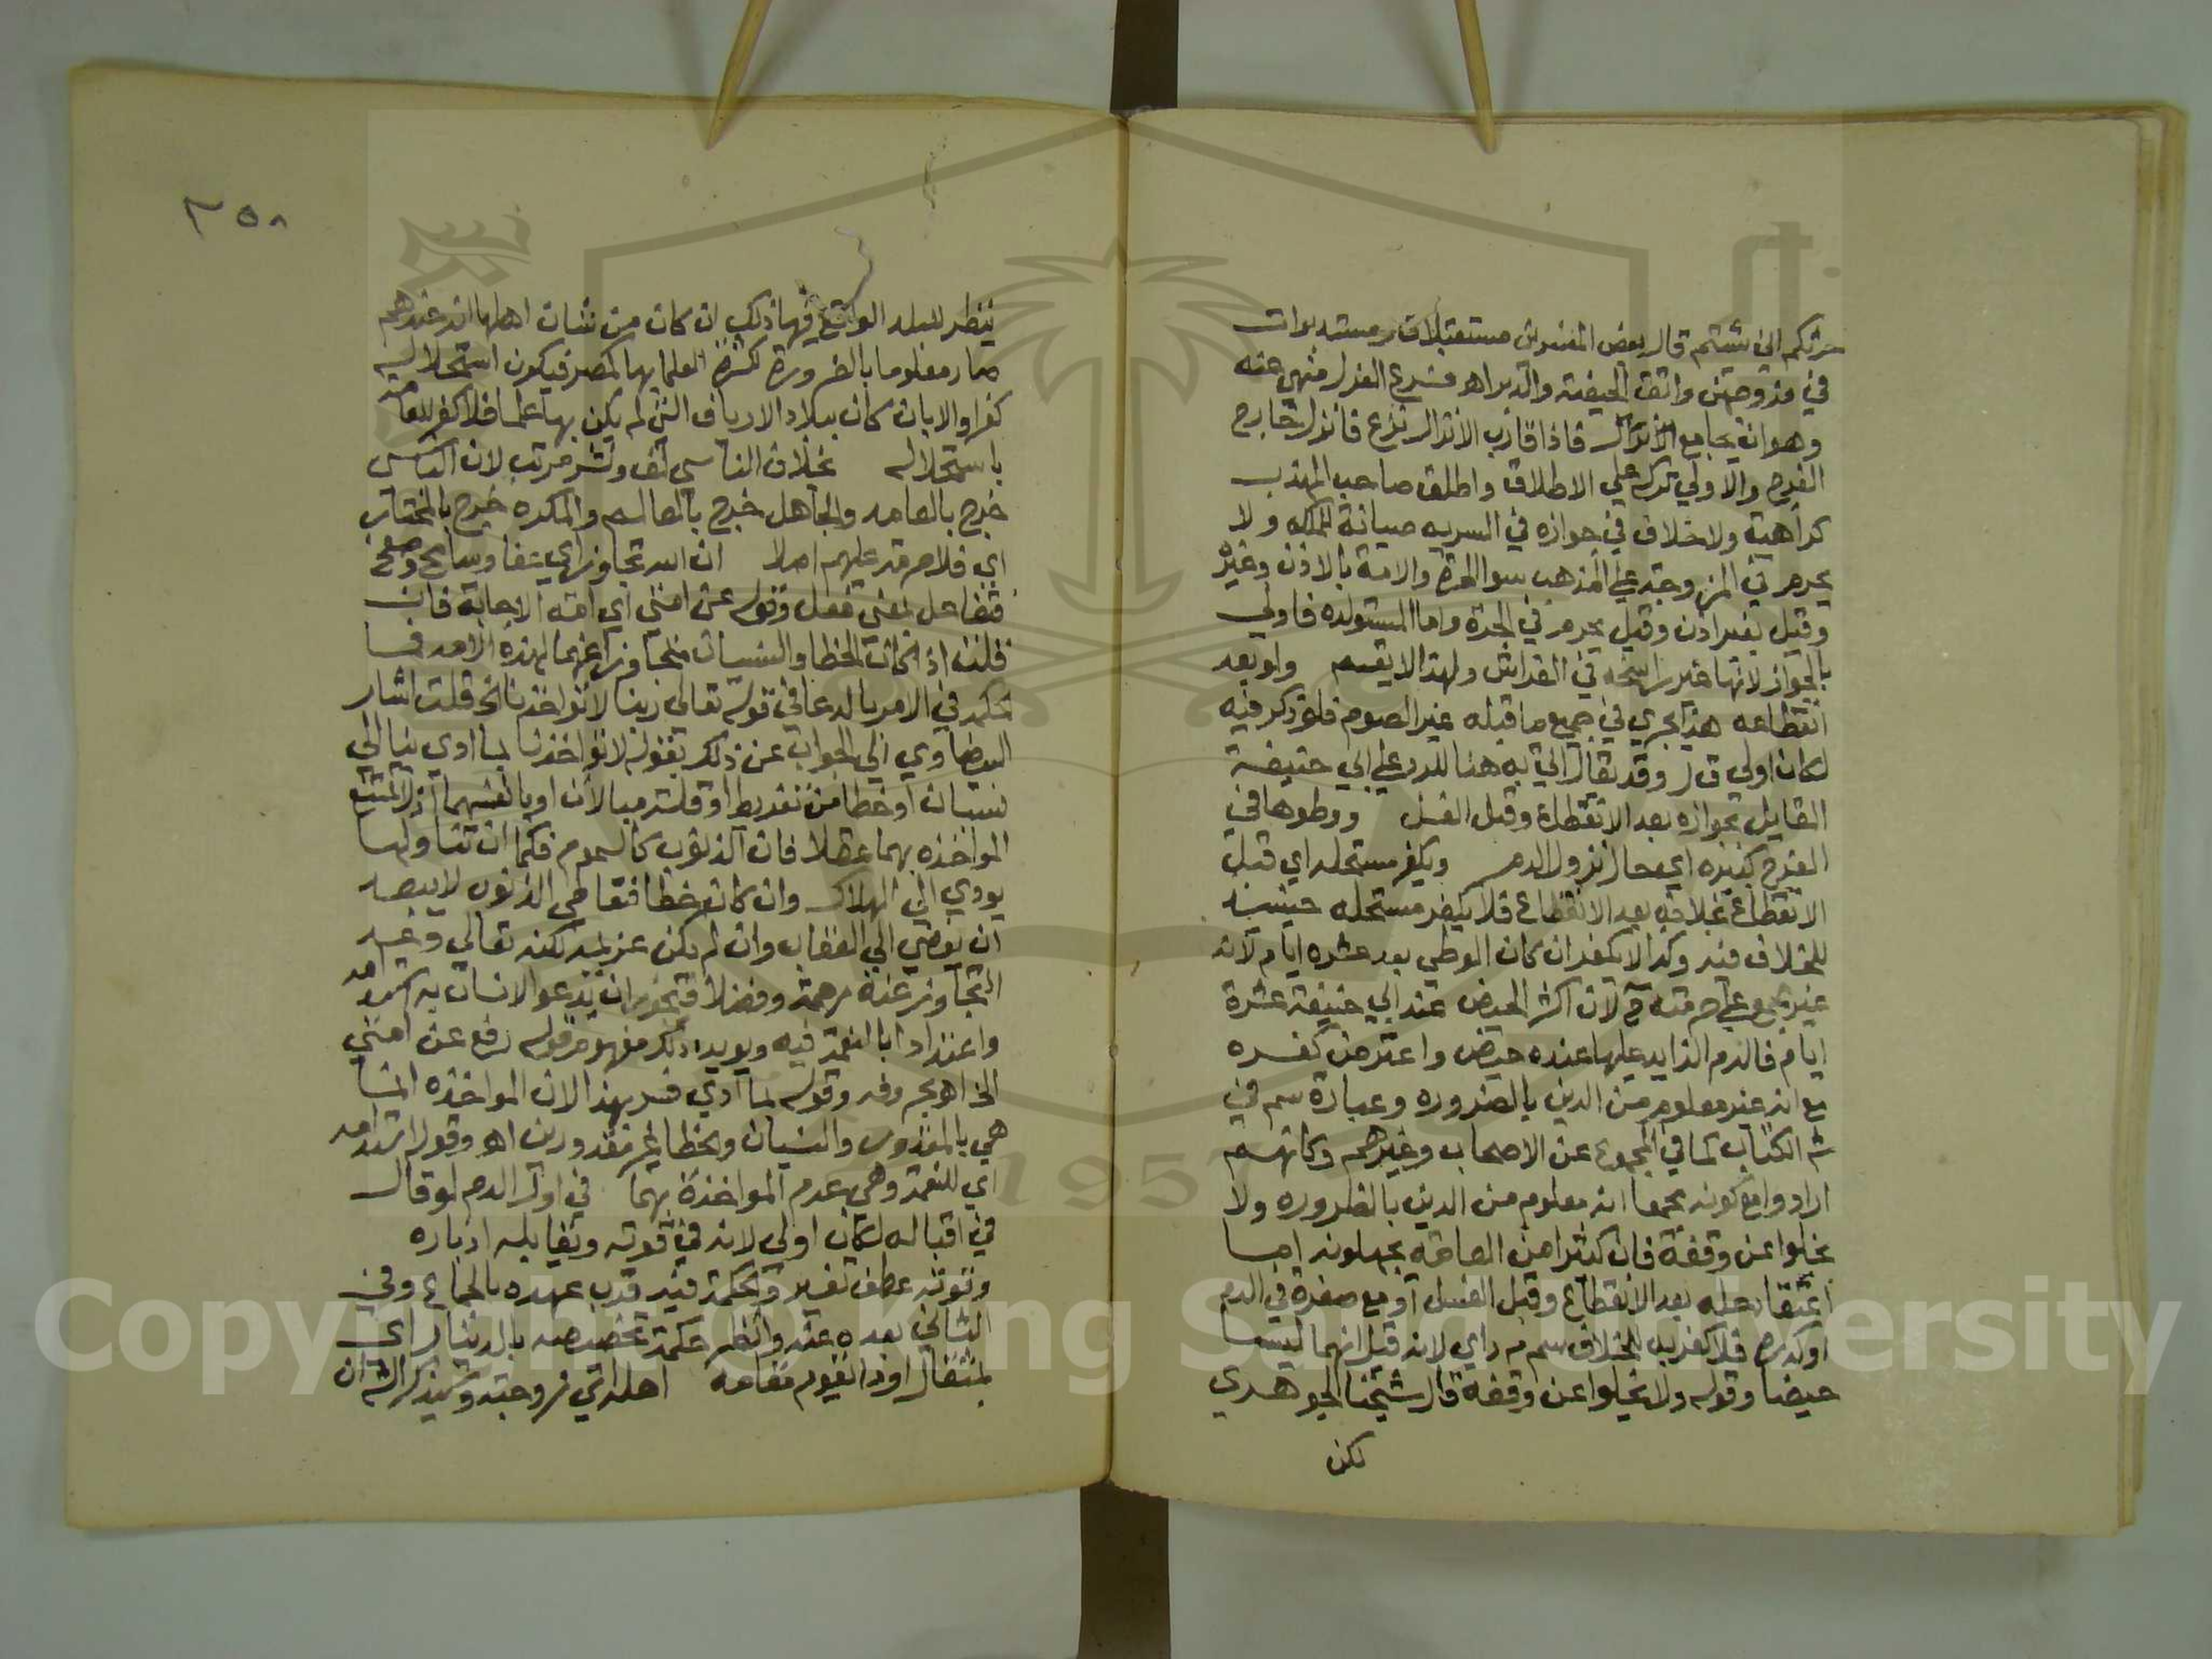 حرثكم اني شئتم قال بعض المفسرين مستقبلات ومستدبرات
في فروجهن واتق الحيضة والدبر اهر فشرع العزل منهي عنه
وهو انه يجامع فاذا قارب الانزال نزع فانزل خارج
الفرج والاولي تركه علي الاطلاق واطلق صاحب المهذب
كراهيته ولا خلاف في جوازه في السريه صيانة للملك ولا
يحرم في المزوجة علي المذهب سوا الحرة والامة بالاذن وغيره
وقيل بغير اذن وقيل يحرم في الحرة واما المستولده فاولي
بالجواز لانها غير راسخه في الفراش ولهذا لا يقسم ولو بعد
انقطاعه هذا يجري في جميع ما قبله غير الصوم فلو ذكر فيه
لكان اولي وقد يقال اتي به هنا للرد علي ابي حنيفة
القايل بجوازه بعد الانقطاع وقبل الغسل ووطوها في
الفرج كبيرة اي حال نزول الدم ويكفر مستحله اي قبل
الانقطاع بخلافه بعد الانقطاع فلا يكفر مستحله حينئذ
للخلاف فيه وكذا لا يكفر ان كان الوطي بعد عشره ايام لانه
غير مجمع علي حرمته ح لان اكثر الحيض عند ابي حنيفة عشرة
ايام فالدم الزايد عليها عنده حيض واعترض كفره
مع انه غير معلوم من الدين بالضروره وعبارة سم في
شر الكتاب كما في المجموع عن الاصحاب وغيرهم وكانهم
ارادوا مع كونه مجمعا انه معلوم من الدين بالضروره ولا
يخلوا عن وقفة فان كثيرا من العامه يجهلونه اما
اعتقاد حله بعد الانقطاع وقبل الغسل او مع صفرة في الدم
او كدره فلا كفر به للخلاف سم م ر اي لانه قيل انهما ليسا
حيضا وقوله ولا يخلوا عن وقفة قال شيخنا الجوهري
لكن
٣٥٨
ينظر للبلد الواقع فيها ذلك ان كان من شان اهلها انه عندهم
صار معلوما بالضرورة لكثرة العلما بها كمصر فيكون استحلاله
كفرا والا بان كان ببلاد الارياف التي لم يكن بها علما فلا كفر للعامة
باستحلاله بخلاف الناسي لف ونشر مرتب لان الناسي
خرج بالعامد والجاهل خرج بالعالم والمكره خرج بالمختار
اي فلا حرمة عليهم اصلا ان الله تجاوز اي عفا وسامح وصفح
فتفاعل بمعني فعل وقوله عن امتي اي امة الاجابة فان
قلت اذا كان الخطا والنسيان متجاوزا عنهما لهذه الامه فما
حكمة في الامر بالدعا في قوله تعالي ربنا لا تؤاخذنا الخ قلت اشار
البيضاوي الي الجواب عن ذلك بقوله لا تواخذنا بما ادي بنا الي
نسيان او خطا من تفريط او قلت مبالاة او بانفسهما اذ لا تمتنع
المواخذه بهما عقلا فان الذنوب كالسموم فكما ان تناولها
يودي الي الهلاك وان كان خطا فتعاطي الذنوب لا يبعد
ان يفضي الي العقاب وان لم يكن عزيمة لكنه تعالي وعد
التجاوز عنه رحمة وفضلا فيجوز ان يدعو الانسان به استدامه
واعتدادا بالنعمة فيه ويويد ذلك مفهوم قوله رفع عن امتي
الخ اهر بحروفه وقوله لما ادي فسر بهذا لان المواخذه انما
هي بالمقدور والنسيان والخطا غير مقدورين اهر وقوله استدامه
اي للنعمة وهي عدم المواخذة بهما في اول الدم لو قال
في اقباله لكان اولي لانه في قوته ويقابله ادباره
وقوته عطف تفسير والحكمة فيه قرب عهده بالجماع وفي
الثاني بعده عنه وانظر حكمة تخصيصه بالدينار اي
بمثقال او ما يقوم مقامه اهله اي زوجته ولم يذكر الش ان